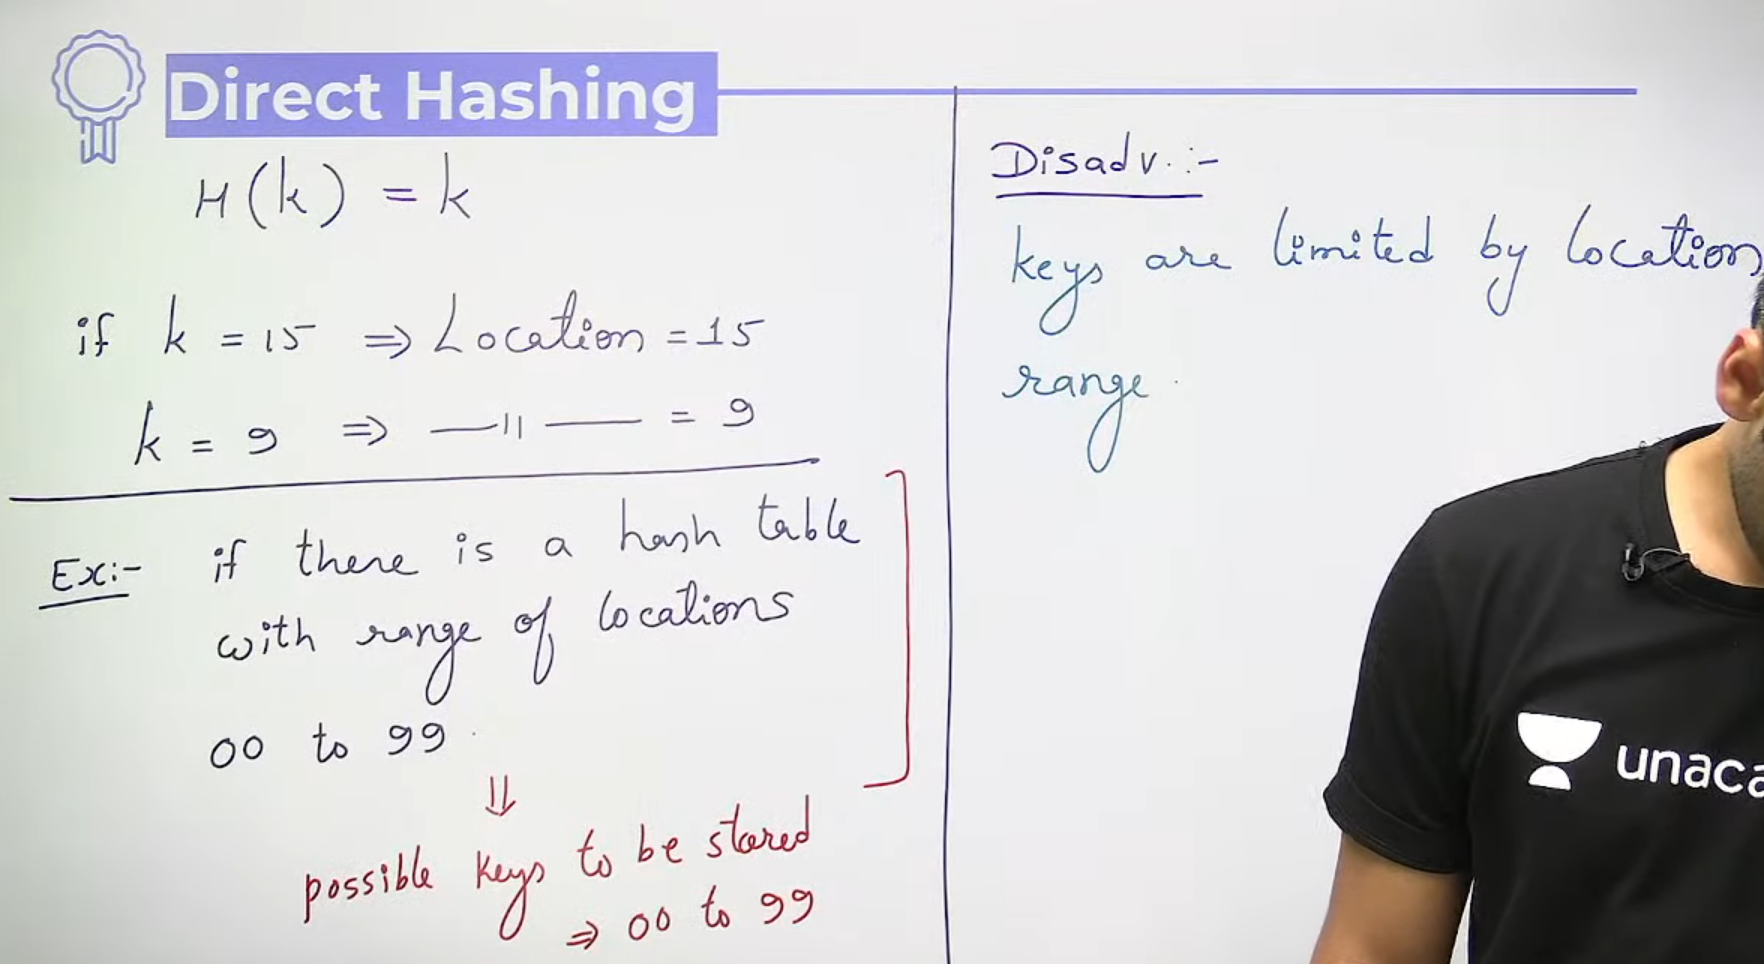 Direct Hashing
H(k) = k
if k = 15 ⇒ Location = 15
k = 9 ⇒ —〃— = 9
Ex:- if there is a hash table
with range of locations
00 to 99.
⇓
possible keys to be stored
⇒ 00 to 99
Disadv. :-
keys are limited by location
range.
unaca